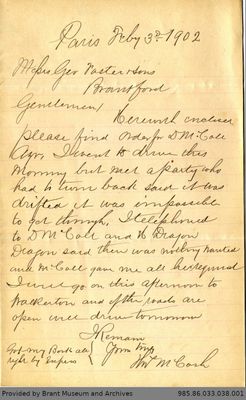 Paris Feby 3rd 1902
Messrs Geo Foster & Sons
Brantford
Gentlemen
Herewith enclosed
please find order for D McColl
Ayr, I went to drive this
Morning but met a party who
had to turn back said it was
drifted it was impossible
to get through, I telephoned
to D McColl and to Dragon
Dragon said there was nothing wanted
and McColl gave me all he required
I will go on this afternoon to
and if the roads are
open will drive tomorrow
I Remain
Yours truly
McCosh
Got my Book all
right by Express
Provided by Brant Museum and Archives
985.86.033.038.001